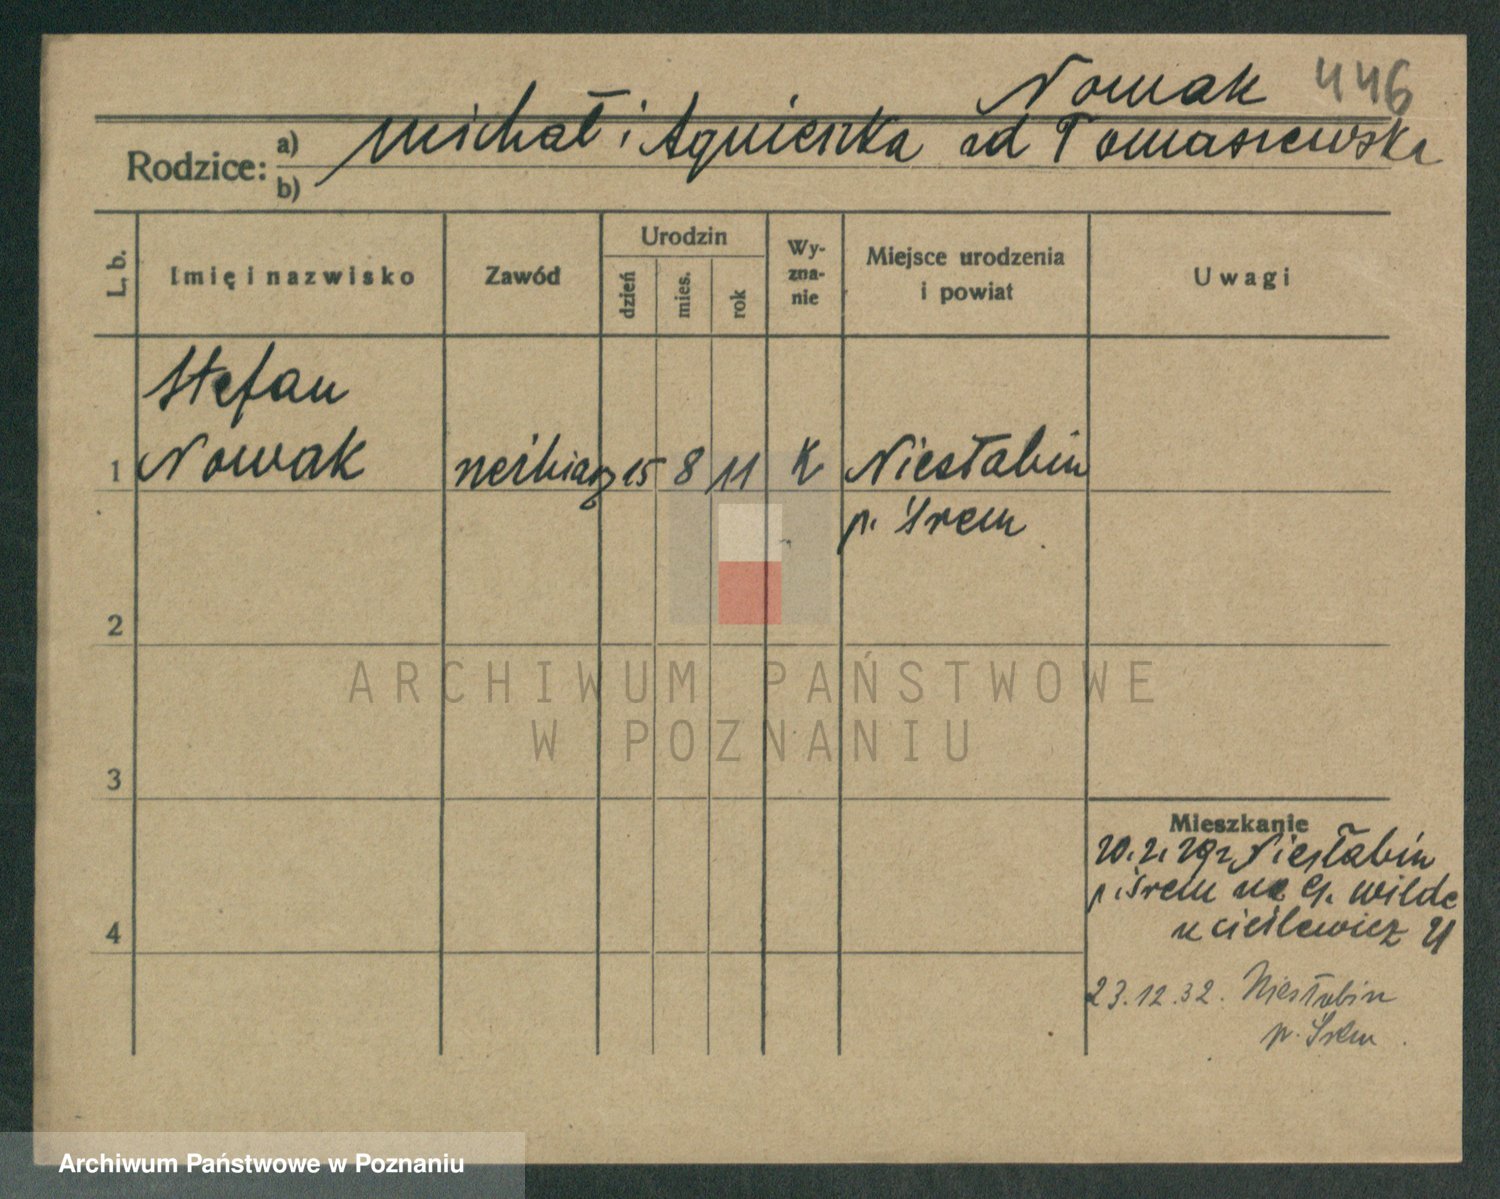 Nowak 446
Rodzice: a) b) Michał i Agnieszka ad Tomaszewska
L. b.
Imię i nazwisko
Zawód
Urodzin
dzień
mies.
rok
Wy-
zna-
nie
Miejsce urodzenia
i powiat
Uwagi
Stefan
1 Nowak 15 8 11 K Niesłabin
p. Śrem
2
ARCHIWUM PAŃSTWOWE
W POZNANIU
3
Mieszkanie
20. 2. 29 z Niesłabin
p. Śrem na G. Wilde
u Cieślewicz 21
4
23.12.32. Niesłabin
p. Śrem
Archiwum Państwowe w Poznaniu